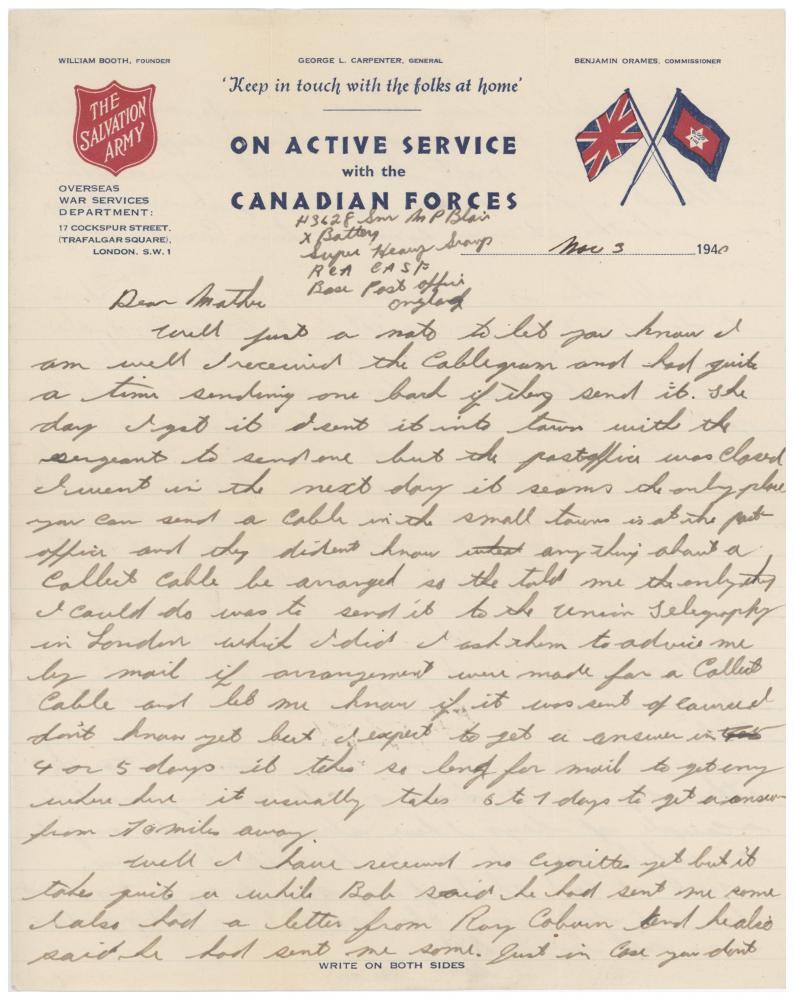 WILLIAM BOOTH, FOUNDER
GEORGE L. CARPENTER, GENERAL
BENJAMIN ORAMES, COMMISSIONER
THE
SALVATION
ARMY
'Keep in touch with the folks at home'
ON ACTIVE SERVICE
with the
CANADIAN FORCES
OVERSEAS
WAR SERVICES
DEPARTMENT:
17 COCKSPUR STREET,
(TRAFALGAR SQUARE),
LONDON. S.W. 1
H3628 Gnr M P Blair
X Battery
Super Heavy Group
RCA CASF
Base Post Office
England
Nov 3 1940
Dear Mother
Well just a note to let you know I
am well I received the Cablegram and had quite
a time sending one back if they send it. The
day I got it I sent it into town with the
sergeant to send one but the postoffice was closed
I went in the next day it seams the only place
you can send a cable in the small towns is at the post
office and they dident know anything about a
Collect Cable be arranged so the told me the only thing
I could do was to send it to the Union Telegraphy
in London which I did I ask them to advice me
by mail if arrangement were made for a Collect
Cable and let me know if it was sent of course I
don't know yet but I expect to get a answer in
4 or 5 days it takes so long for mail to get any
where here it usually takes 6 to 7 days to get a answer
from 70 miles away
Well I have received no Cigarettes yet but it
takes quite a while Bob said he had sent me some
I also had a letter from Ray Coburn and he also
said he had sent me some. Just in case you dont
WRITE ON BOTH SIDES